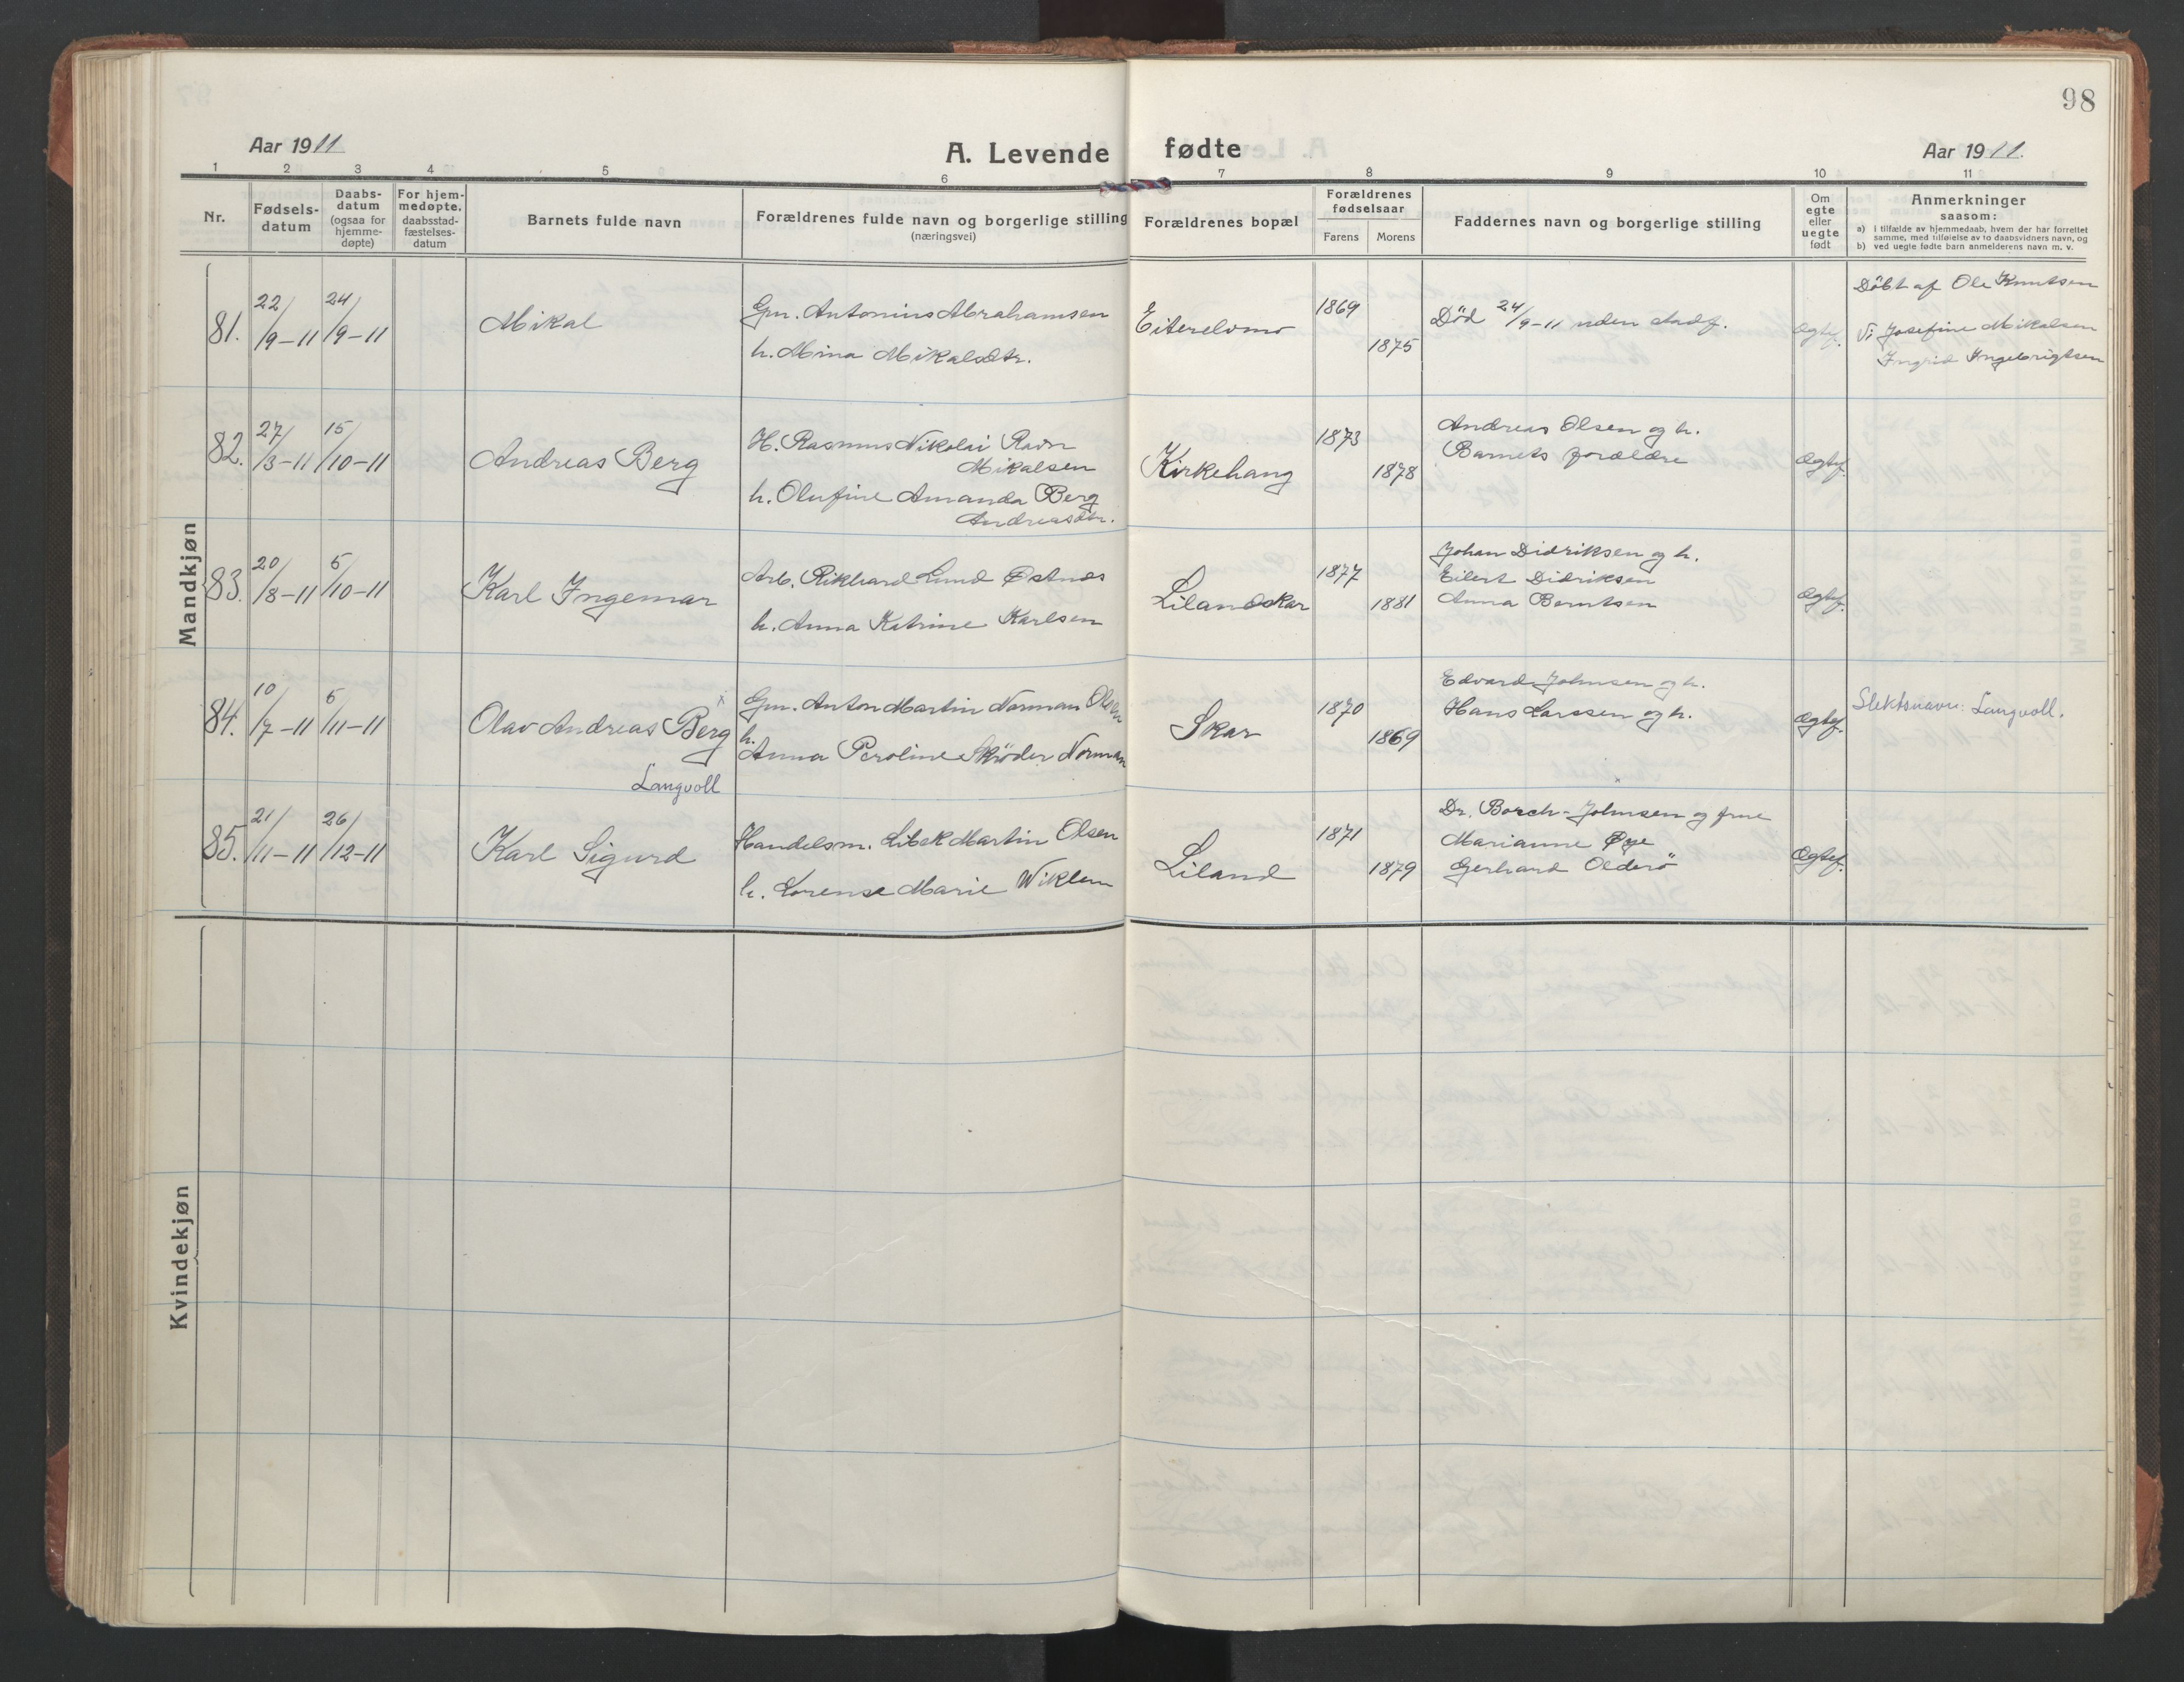 98
Aar 1911
A. Levende fødte
Aar 1911.
1 2 3 4 5 6 7 8 9 10 11
Nr.
Fødsels-
datum
Daabs-
datum
(ogsaa for
hjemme-
døpte)
For hjem-
medøpte.
daabsstad-
fæstelses-
datum
Barnets fulde navn
Forældrenes fulde navn og borgerlige stilling
(næringsvei)
Forældrenes bopæl
Forældrenes
fødselsaar
Farens Morens
Faddernes navn og borgerlige stilling
Om
egte
eller
uegte
født
Anmerkninger
saasom:
a) i tilfælde av hjemmedaab, hvem der har forrettet
samme, med tilføielse av to daabsvidners navn, og
b) ved uegte fødte barn anmelderens navn m. v.
Mandkjøn
81.
22/9-11
24/9-11
Mikal
Gm. Antonius Abrahamsen
h. Mina Mikalsdtr.
Eiterelvmo
1869
1875
Død 24/9-11 uden stadf.
Ægtef.
Döbt af Ole Knutsen
Vi Josefine Mikalsen
Ingrid Ingebrigtsen
82.
27/3-11
15/10-11
Andreas Berg
H. Rasmus Nikolai Ravn
Mikalsen
h. Olufine Amanda Berg
Andreasdtr.
Kirkehaug
1873
1878
Andreas Olsen og h.
Barnets forældre
Ægtef.
83.
20/8-11
5/10-11
Karl Ingemar
Arb. Rikhard Lund Østnes
h. Anna Katrine Karlsen
Lilandskar
1877
1881
Johan Didriksen og h.
Eilert Didriksen
Anna Berntsen
Ægtef.
84.
10/7-11
5/11-11
Olav Andreas Berg x
Langvoll
Gm. Anton Martin Norman Olsen
h.
Anna Peroline Skröder Norman
Skar
1870
1869
Edvard Johnsen og h.
Hans Larssen og h.
Ægtef.
Slektsnavn: Langvoll.
85.
21/11-11
26/12-11
Karl Sigurd
Handelsm. Libek Martin Olsen
h. Lorense Marie Wiklem
Liland
1871
1879
Dr. Borch-Johnsen og frue
Marianne Øye
Gerhard Olderö
Ægtef.
Kvindekjøn